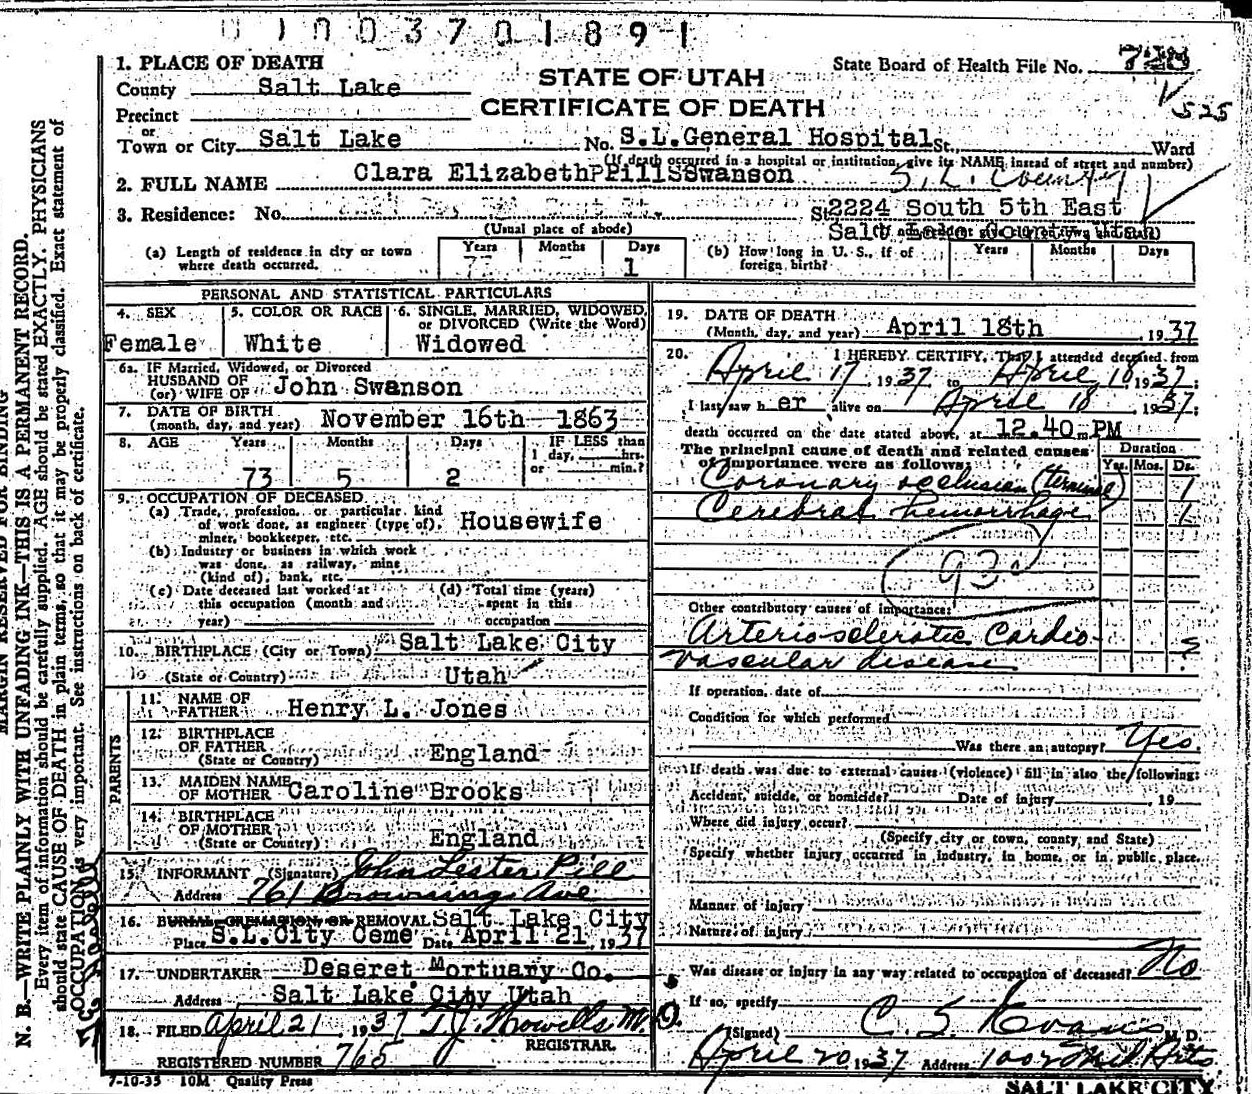 0100370189 1
1. PLACE OF DEATH
STATE OF UTAH
CERTIFICATE OF DEATH
State Board of Health File No. 728
525
County Salt Lake
Precinct
or
Town or City Salt Lake No. S.L.General Hospital St., Ward
(If death occurred in a hospital or institution, give its NAME instead of street and number)
2. FULL NAME Clara Elizabeth Pill Swanson
S. L. County
3. Residence: No. St. 2224 South 5th East
(Usual place of abode)
Salt Lake County Utah
(a) Length of residence in city or town where death occurred. Years Months Days 1
(b) How long in U. S., if of foreign birth? Years Months Days
PERSONAL AND STATISTICAL PARTICULARS
4. SEX Female
5. COLOR OR RACE White
6. SINGLE, MARRIED, WIDOWED, or DIVORCED (Write the Word) Widowed
6a. IF Married, Widowed, or Divorced
HUSBAND OF
(or) WIFE OF John Swanson
7. DATE OF BIRTH
(month, day, and year) November 16th 1863
8. AGE Years 73 Months 5 Days 2 IF LESS than 1 day, hrs. or min.?
9. OCCUPATION OF DECEASED
(a) Trade, profession, or particular kind
of work done, as engineer (type of),
miner, bookkeeper, etc. Housewife
(b) Industry or business in which work
was done, as railway, mine
(kind of), bank, etc.
(c) Date deceased last worked at this occupation (month and year)
(d) Total time (years) spent in this occupation
10. BIRTHPLACE (City or Town) Salt Lake City
(State or Country) Utah
PARENTS
11. NAME OF FATHER Henry L. Jones
12. BIRTHPLACE OF FATHER
(State or Country) England
13. MAIDEN NAME OF MOTHER Caroline Brooks
14. BIRTHPLACE OF MOTHER
(State or Country) England
15. INFORMANT (Signature) John Lester Pill
Address 761 Browning Ave
16. BURIAL, CREMATION, OR REMOVAL Salt Lake City
Place S.L.City Ceme Date April 21, 1937
17. UNDERTAKER Deseret Mortuary Co.
Address Salt Lake City Utah
18. FILED April 21, 1937 T. J. Howells M. D.
REGISTRAR.
REGISTERED NUMBER 765
7-10-35 10M Quality Press
19. DATE OF DEATH
(Month, day, and year) April 18th 1937
20. I HEREBY CERTIFY, That I attended deceased from
April 17, 1937 to April 18, 1937;
I last saw her alive on April 18, 1937;
death occurred on the date stated above, at 12.40 m PM
The principal cause of death and related causes
of importance were as follows:
Duration
Yrs. Mos. Ds.
Coronary occlusion (terminal) 1
Cerebral hemorrhage 1
Other contributory causes of importance:
Arteriosclerotic Cardio-
vascular disease ?
If operation, date of
Condition for which performed
Was there an autopsy? Yes
If death was due to external causes (violence) fill in also the following:
Accident, suicide, or homicide? Date of injury , 19
Where did injury occur?
(Specify city or town, county, and State)
Specify whether injury occurred in industry, in home, or in public place.
Manner of injury
Nature of injury
Was disease or injury in any way related to occupation of deceased? No
If so, specify
(Signed) C. S. Evans M. D.
April 20, 1937 Address 1007 Med. Arts
SALT LAKE CITY
MARGIN RESERVED FOR BINDING
N. B.—WRITE PLAINLY WITH UNFADING INK—THIS IS A PERMANENT RECORD.
Every item of information should be carefully supplied. AGE should be stated EXACTLY. PHYSICIANS
should state CAUSE OF DEATH in plain terms, so that it may be properly classified. Exact statement of
OCCUPATION is very important. See instructions on back of certificate.